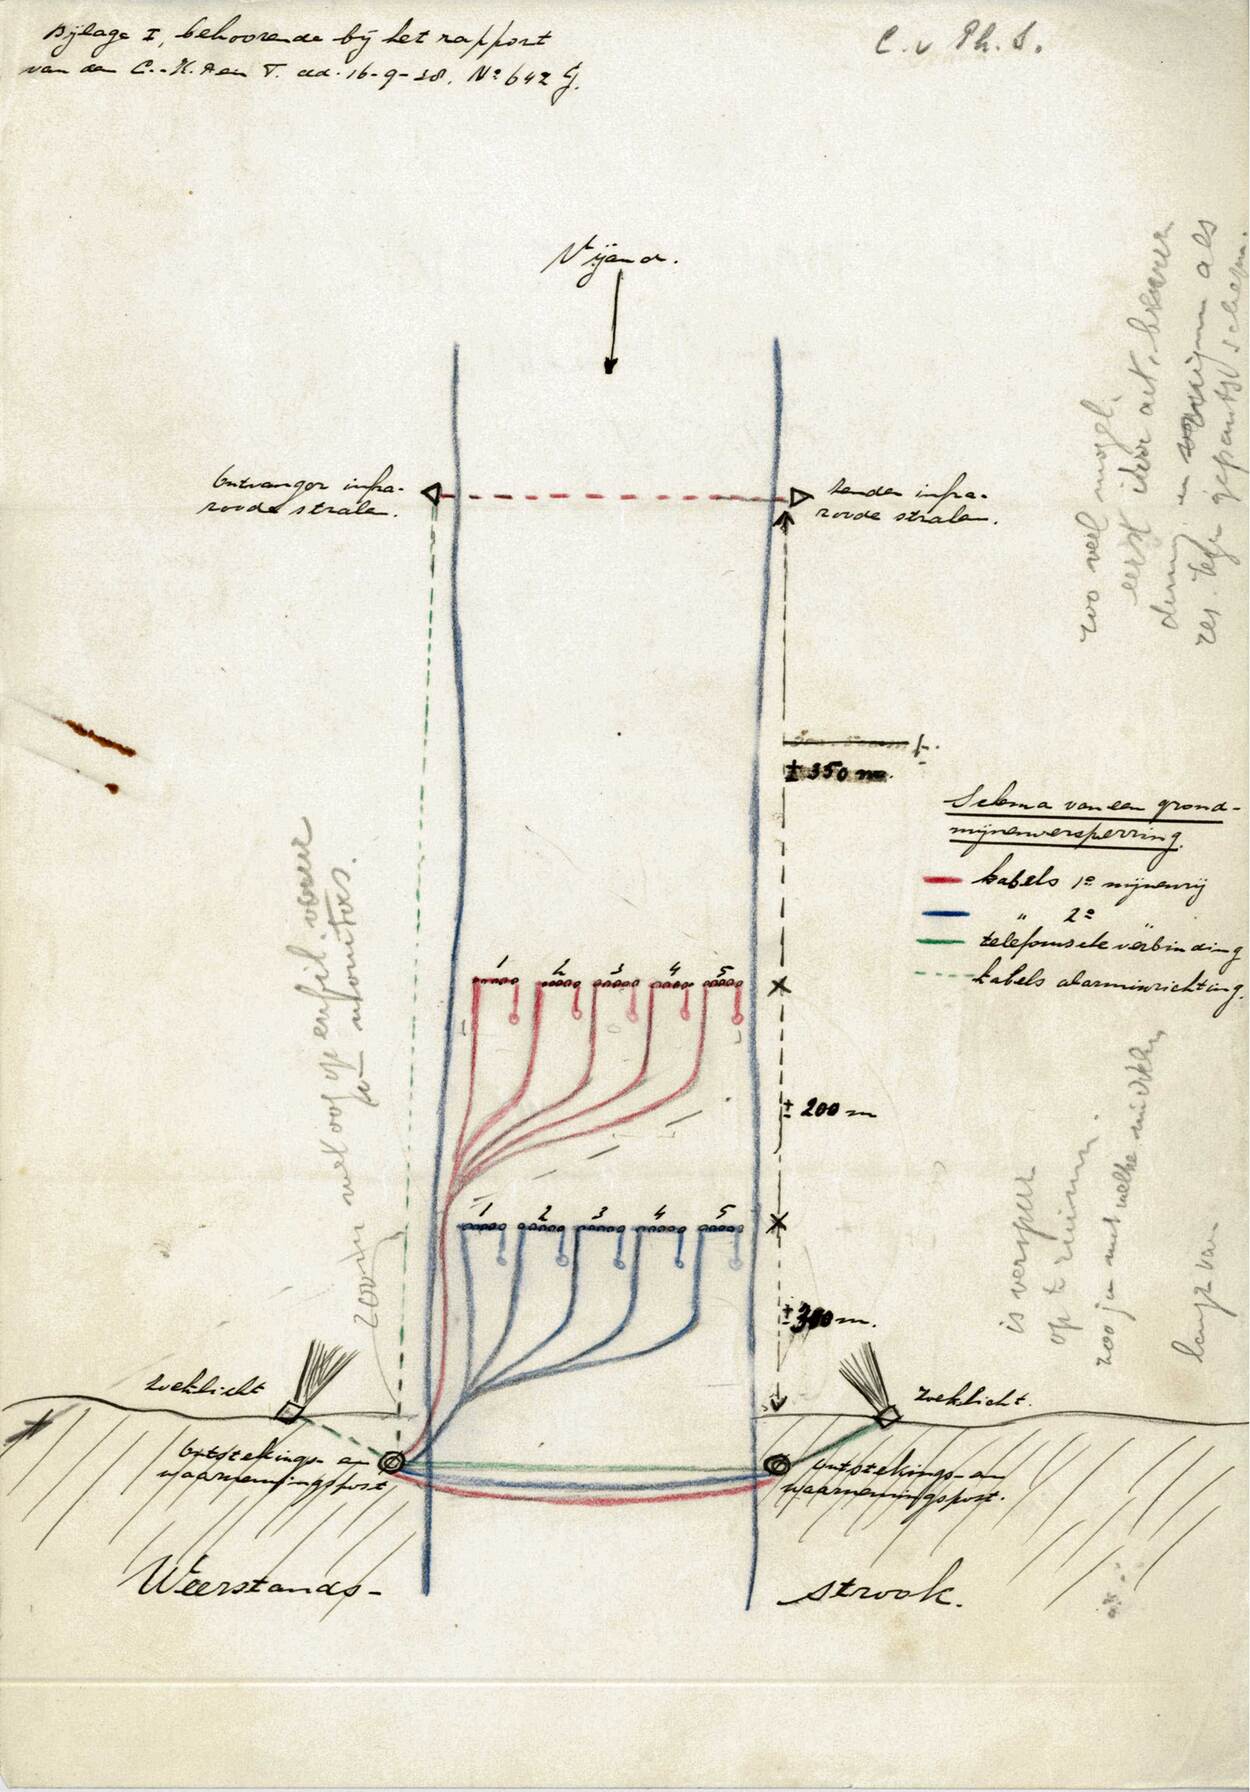 Bijlage I, behoorende bij het rapport
van den C.-K. A en T. dd. 16-9-38. Nº 642 G.
C. v Ph. S.
Vijand.
Ontvanger infra-
roode stralen.
zender infra-
roode stralen.
zoo veel mogel.
eerst door art.
als
res. tegen gepantst schepen.
± 350 m.
Schema van een grond-
mijnenversperring.
kabels 1e mijnenrij
" 2e "
telefonische verbinding
kabels alarminrichting.
200 m vooruit
1 2 3 4 5
± 200 m
1 2 3 4 5
± 300 m.
is versper
op te ruimen.
zoo ja met welke middelen
langs van
zoeklicht
zoeklicht.
Ontstekings- en
waarnemingspost
ontstekings- en
waarnemingspost.
Weerstands-
strook.